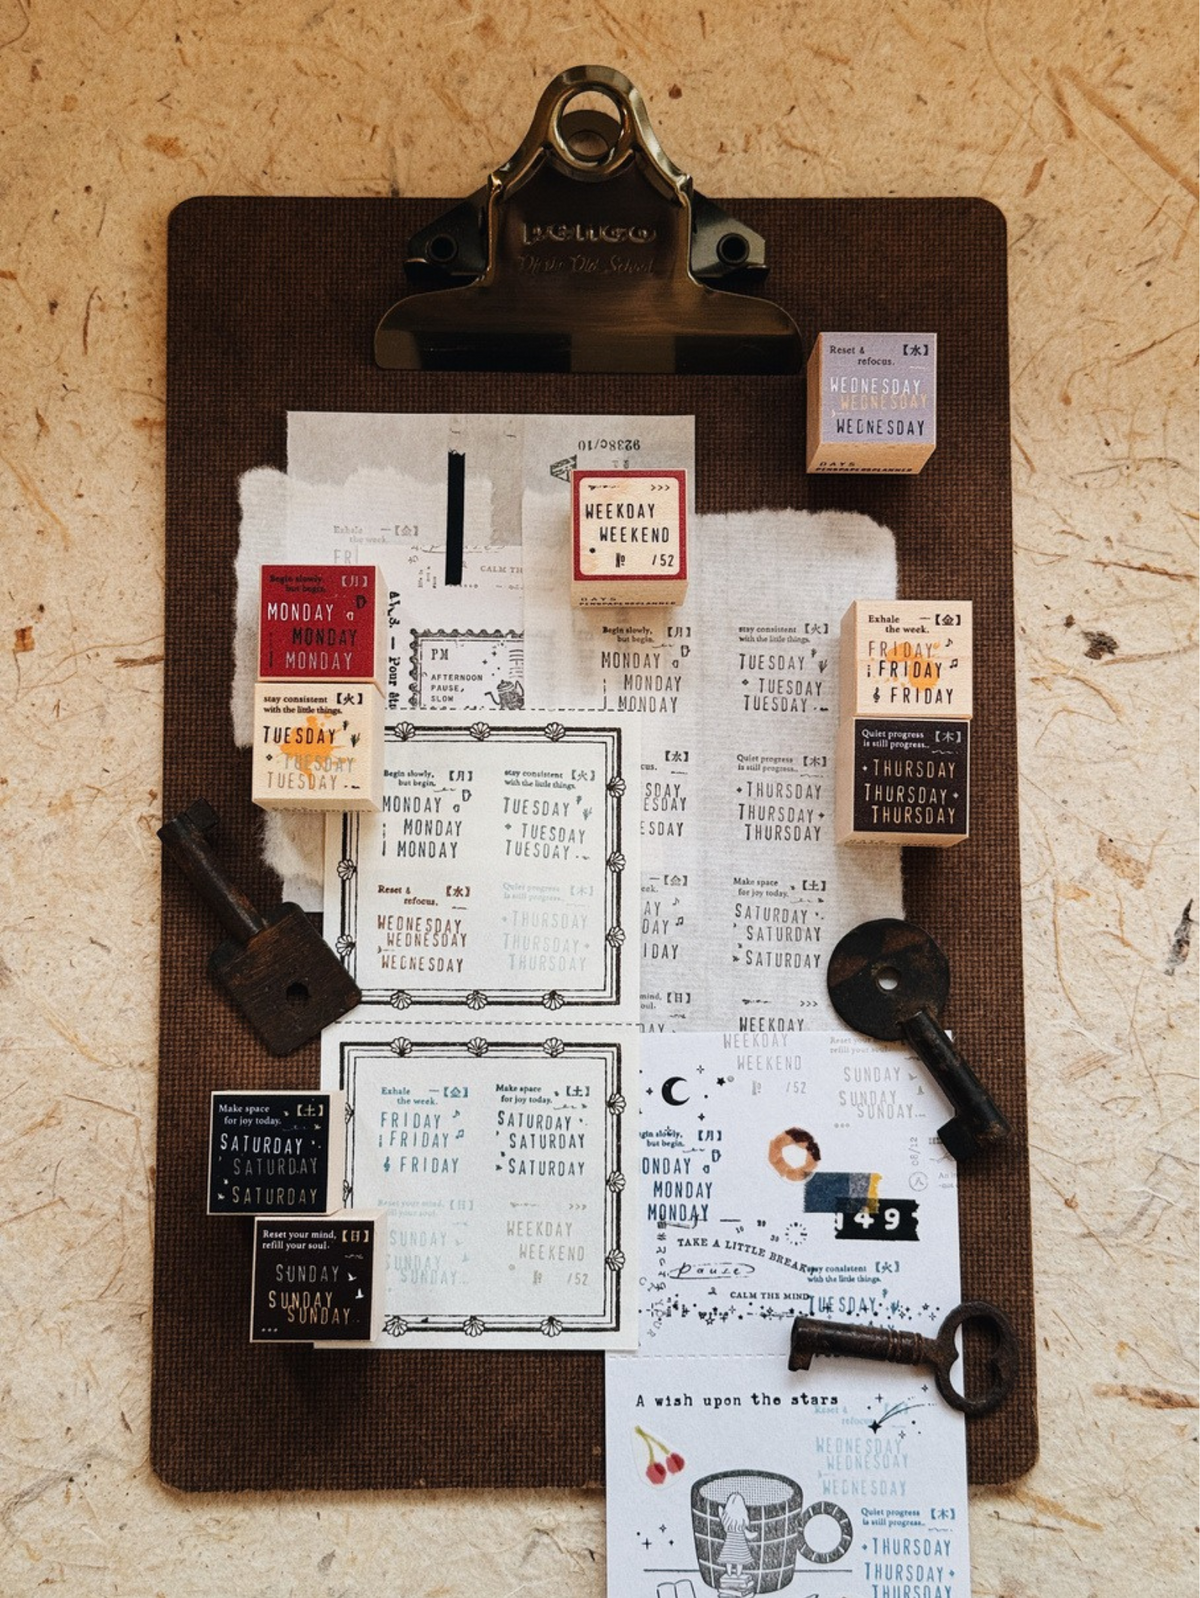 PENCO
Reset & 【水】
refocus.
WEDNESDAY
WEDNESDAY
WEDNESDAY
DAYS
PENSPAPERPLANNER
9238c/10
WEEKDAY
WEEKEND
№ /52
PENSPAPERPLANNER
Exhale 【金】
the week.
FRI
CALM TH
Begin slowly, 【月】
but begin.
MONDAY
MONDAY
MONDAY
stay consistent 【火】
with the little things.
TUESDAY
TUESDAY
TUESDAY
PM
AFTERNOON
PAUSE,
SLOW
Begin slowly, 【月】
but begin.
MONDAY
MONDAY
MONDAY
stay consistent 【火】
with the little things.
TUESDAY
TUESDAY
TUESDAY
Exhale 【金】
the week.
FRIDAY
FRIDAY
FRIDAY
Quiet progress 【木】
is still progress..
THURSDAY
THURSDAY
THURSDAY
【水】
cus.
ESDAY
ESDAY
ESDAY
Quiet progress 【木】
is still progress..
THURSDAY
THURSDAY
THURSDAY
【金】
eek.
AY
DAY
IDAY
Make space 【土】
for joy today.
SATURDAY
SATURDAY
SATURDAY
mind, 【日】
oul.
WEEKDAY
Begin slowly, 【月】
but begin.
MONDAY
MONDAY
MONDAY
stay consistent 【火】
with the little things.
TUESDAY
TUESDAY
TUESDAY
Reset & 【水】
refocus.
WEDNESDAY
WEDNESDAY
WEDNESDAY
Quiet progress 【木】
is still progress..
THURSDAY
THURSDAY
THURSDAY
Exhale 【金】
the week.
FRIDAY
FRIDAY
FRIDAY
Make space 【土】
for joy today.
SATURDAY
SATURDAY
SATURDAY
Reset your mind, 【日】
refill your soul.
SUNDAY
SUNDAY
SUNDAY
WEEKDAY
WEEKEND
№ /52
Make space 【土】
for joy today.
SATURDAY
SATURDAY
SATURDAY
Reset your mind, 【日】
refill your soul.
SUNDAY
SUNDAY
SUNDAY
WEEKDAY
WEEKEND
№ /52
Reset your
refill your soul
SUNDAY
SUNDAY
SUNDAY
gin slowly, 【月】
but begin.
ONDAY
MONDAY
MONDAY
08/12
49
TAKE A LITTLE BREAK
pause
CALM THE MIND
stay consistent 【火】
with the little things.
TUESDAY
A wish upon the stars
Reset &
refocus
WEDNESDAY
WEDNESDAY
WEDNESDAY
Quiet progress 【木】
is still progress..
THURSDAY
THURSDAY
THURSDAY